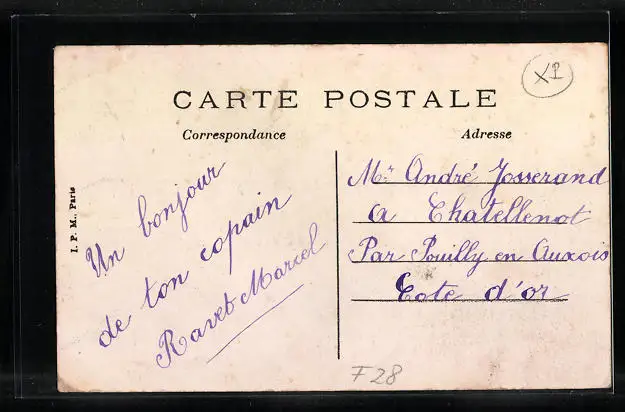 CARTE POSTALE
Correspondance
Adresse
I. P. M., Paris
Un bonjour
de ton copain
Ravet Marcel
Mr André Josserand
a Chatellenot
Par Pouilly en Auxois
Cote d'or
F 28